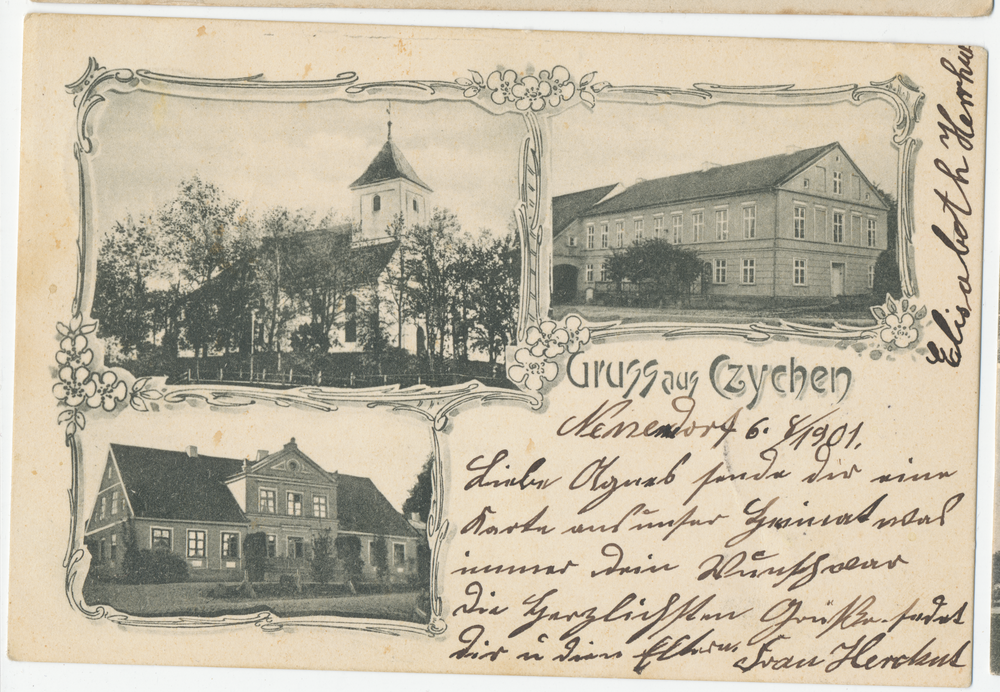 Gruss aus Czychen
6. 8/1901.
Liebe Agnes sende dir eine
Karte aus unser Heimat was
immer dein Wunsch war
die Herzlichsten Grüße sedet
dir u dein Eltern. Frau Herckut
Elisaboth